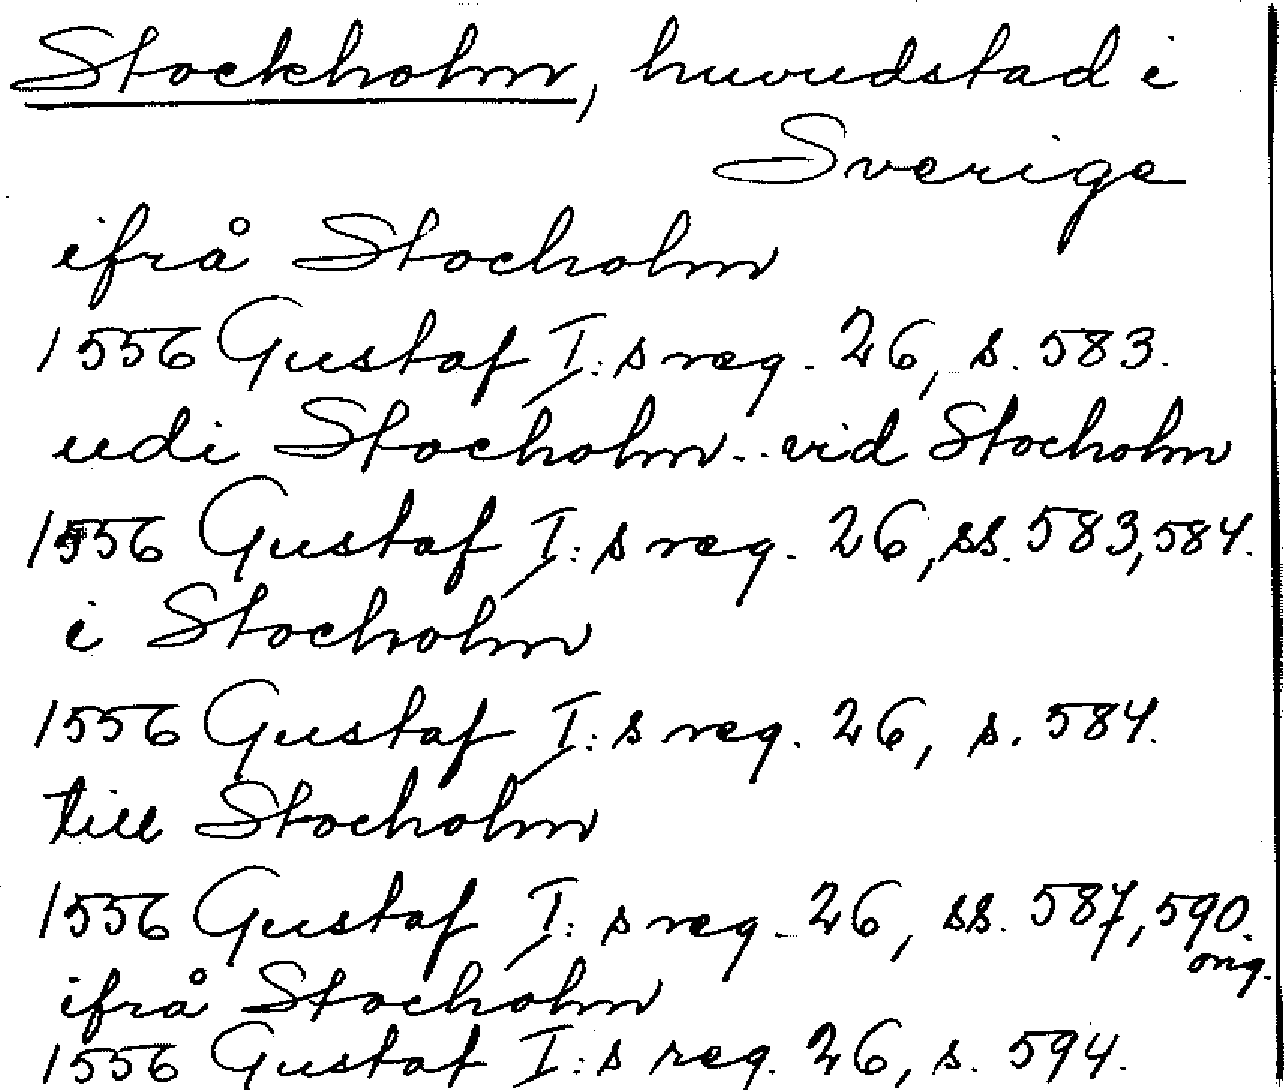 Stockholm, huvudstad i
Sverige
ifrå Stocholm
1556 Gustaf I:s reg. 26, s. 583.
udi Stocholm .. vid Stocholm
1556 Gustaf I:s reg. 26, ss. 583, 584.
i Stocholm
1556 Gustaf I:s reg. 26, s. 584.
till Stocholm
1556 Gustaf I:s reg. 26, ss. 587, 590.
orig.
ifrå Stocholm
1556 Gustaf I:s reg. 26, s. 594.